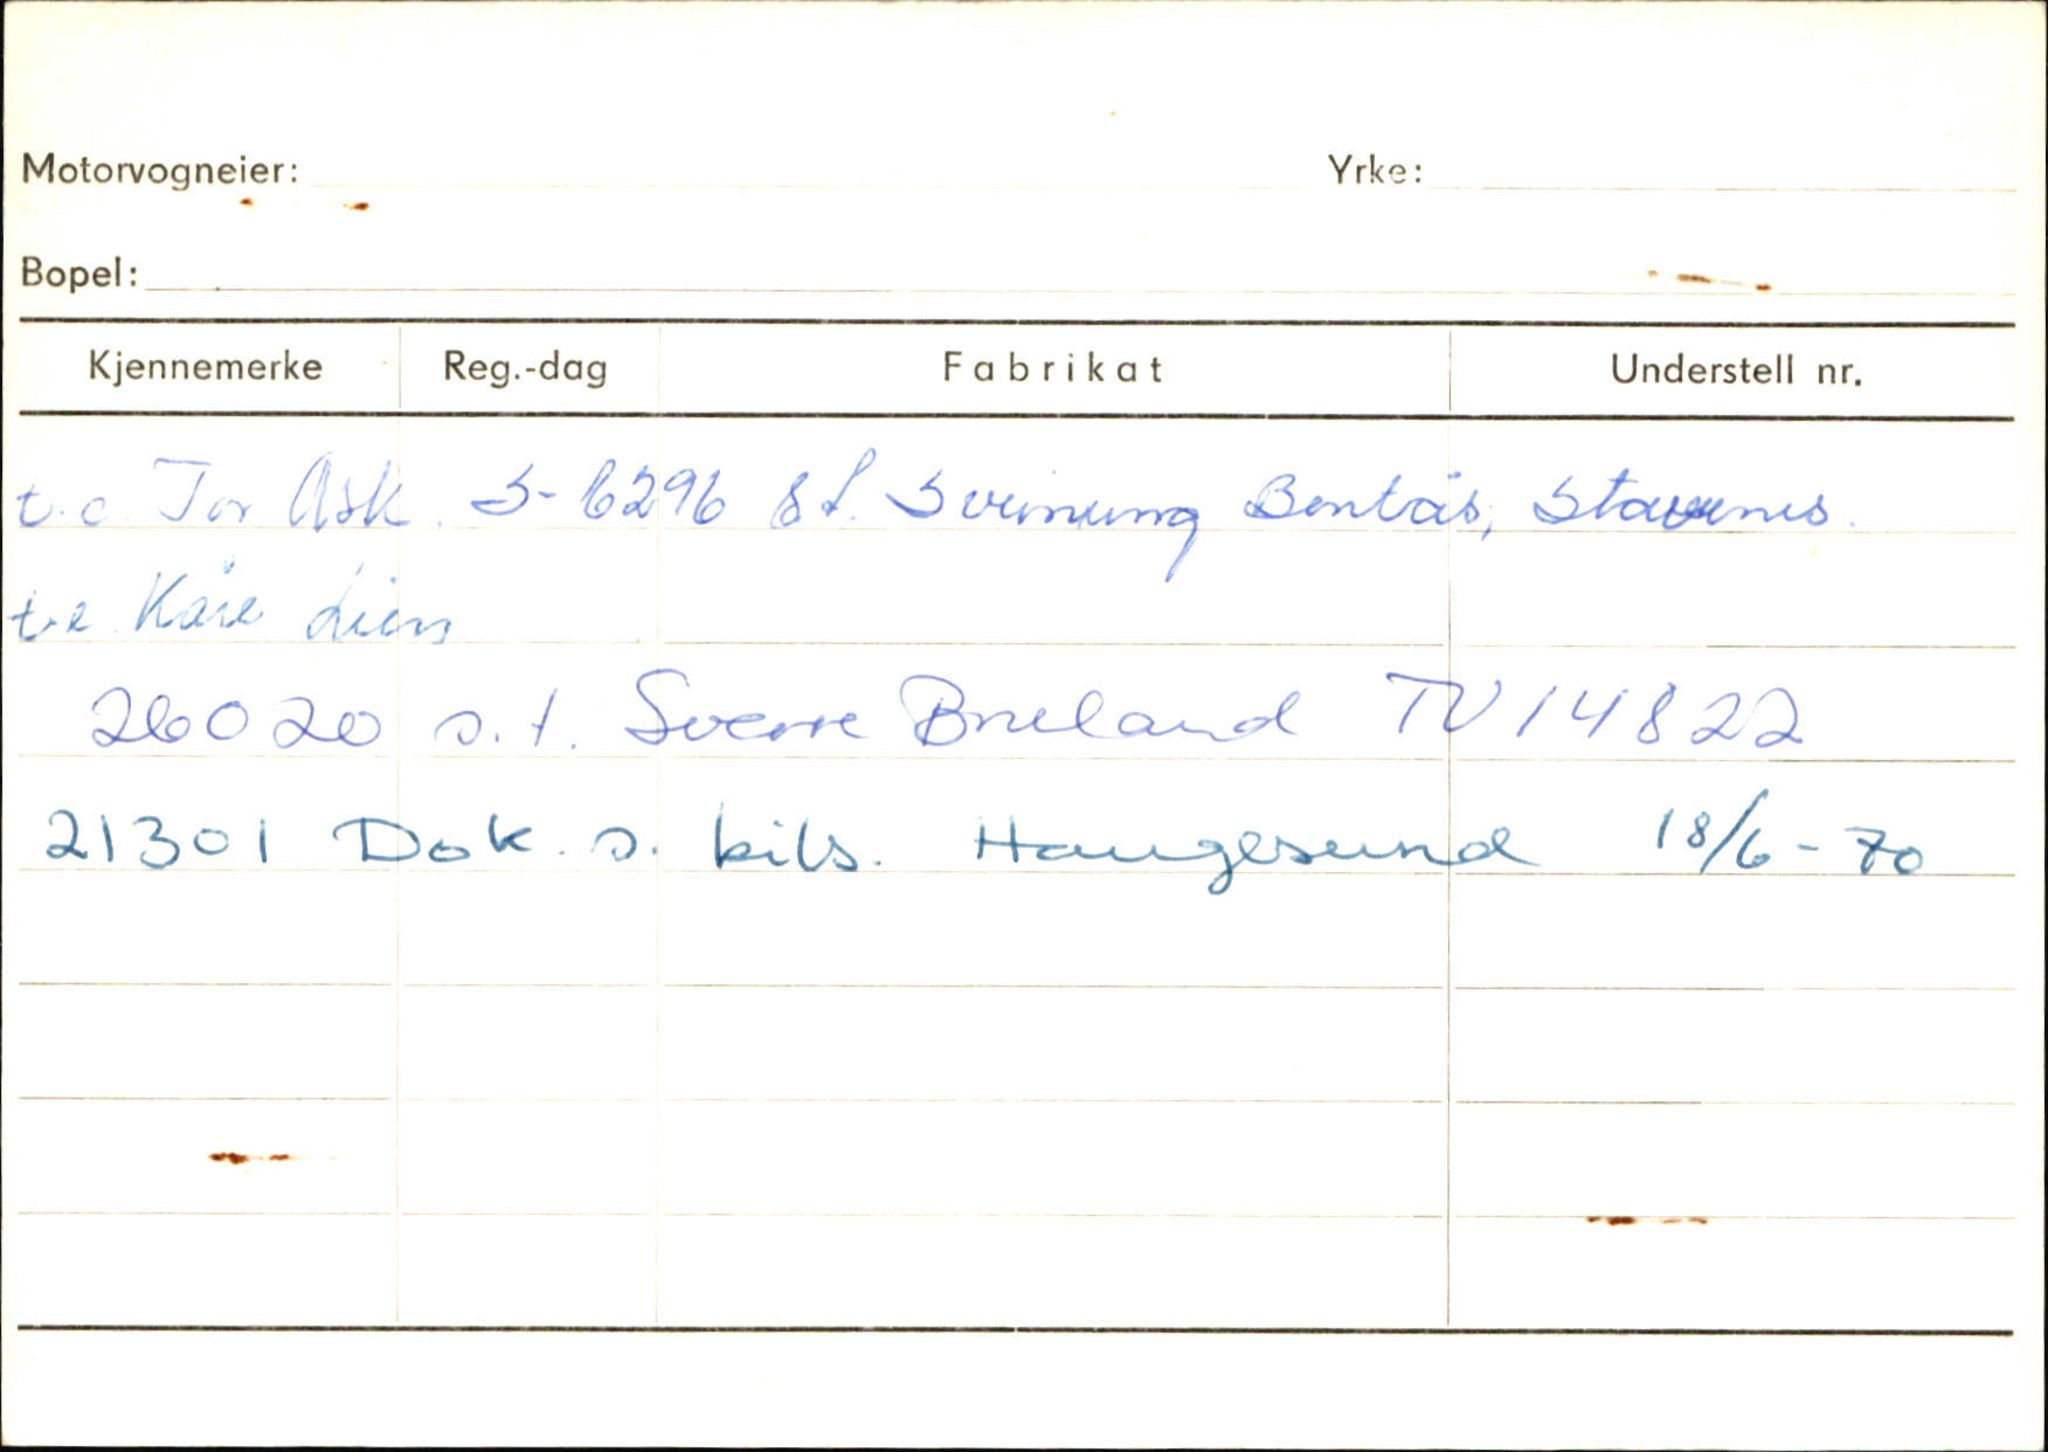 Motorvogneier: Yrke:
Bopel:
Kjennemerke Reg.-dag Fabrikat Understell nr.
t.e Tor Ask. S-6296 s t. Sveinung Bentås, Stavenes.
t.e Kåre Lien
26020 s.t. Sverre Brieland TV 14822
21301 Dok. s. bils. Haugesund 18/6-70